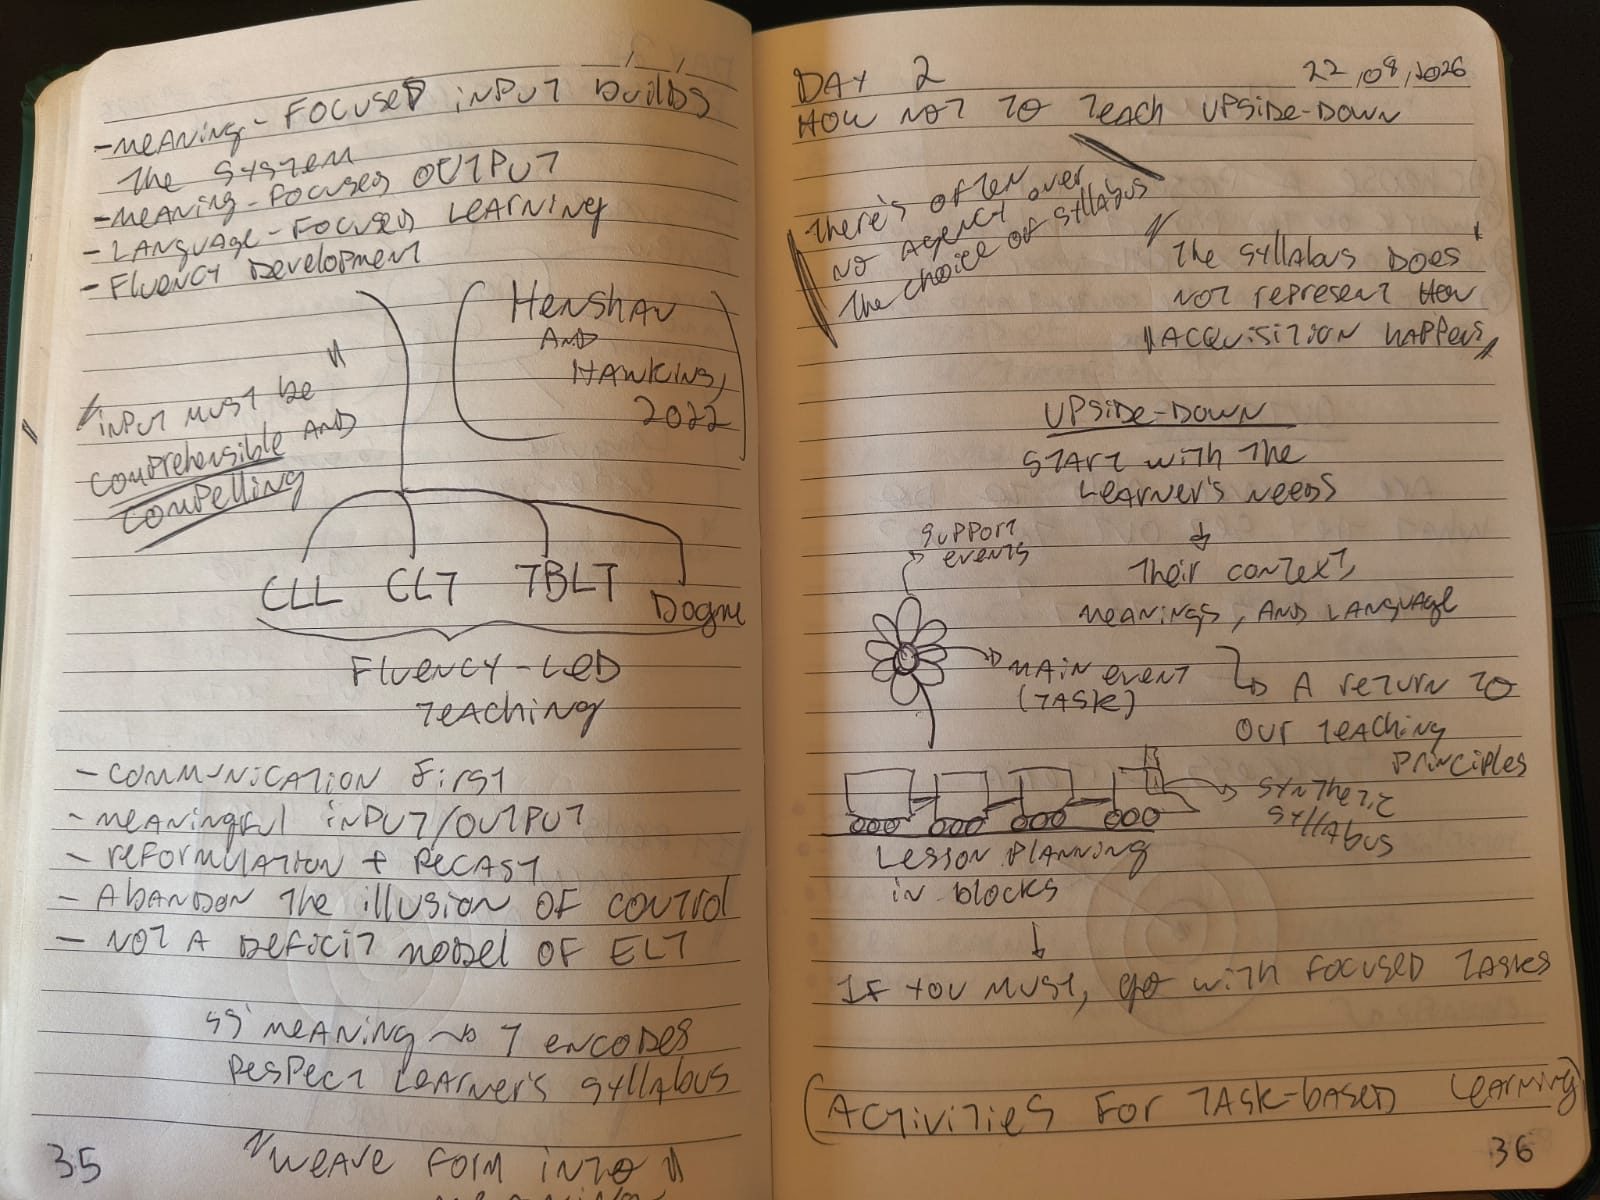 - MEANING-FOCUSED INPUT BUILDS
THE SYSTEM
- MEANING-FOCUSED OUTPUT
- LANGUAGE-FOCUSED LEARNING
- FLUENCY DEVELOPMENT
(HENSHAW
AND
HAWKINS,
2022)
"INPUT MUST BE
COMPREHENSIBLE AND
COMPELLING"
CLL CLT TBLT Dogme
FLUENCY-LED
TEACHING
- COMMUNICATION FIRST
- MEANINGFUL INPUT/OUTPUT
- REFORMULATION + RECAST
- ABANDON THE ILLUSION OF CONTROL
- NOT A DEFICIT MODEL OF ELT
SS' MEANING → T ENCODES
RESPECT LEARNER'S SYLLABUS
"WEAVE FORM INTO
MEANING"
35
DAY 2 22/08/2026
HOW NOT TO TEACH UPSIDE-DOWN
THERE'S OFTEN
NO AGENCY OVER
THE CHOICE OF SYLLABUS
"THE SYLLABUS DOES
NOT REPRESENT HOW
ACQUISITION HAPPENS"
UPSIDE-DOWN
START WITH THE
LEARNER'S NEEDS
↓
THEIR CONTEXT,
MEANINGS, AND LANGUAGE
→ A RETURN TO
OUR TEACHING
PRINCIPLES
SUPPORT
EVENTS
MAIN EVENT
(TASK)
SYNTHETIC
SYLLABUS
LESSON PLANNING
IN BLOCKS
↓
IF YOU MUST, GO WITH FOCUSED TASKS
(ACTIVITIES FOR TASK-BASED LEARNING)
36